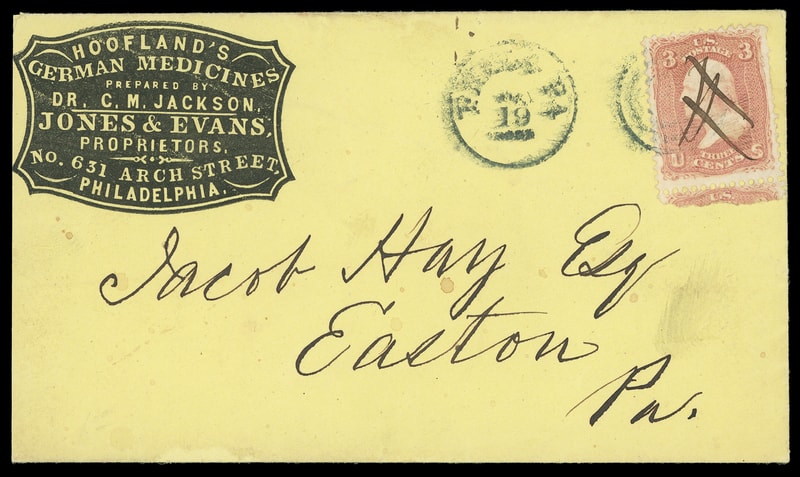 HOOFLAND'S
GERMAN MEDICINES
PREPARED BY
DR. C. M. JACKSON,
JONES & EVANS,
PROPRIETORS,
No. 631 ARCH STREET,
PHILADELPHIA.
PA
19
3 U.S. 3
POSTAGE
U THREE S
CENTS
U.S.
Jacob Hay Esq
Easton
Pa.